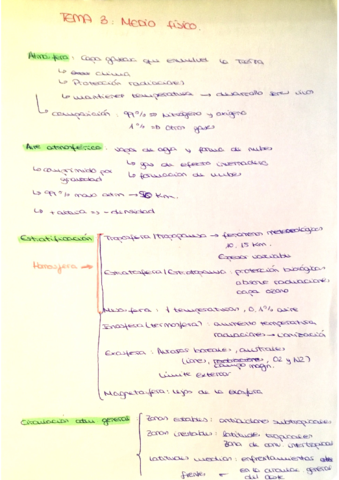 TEMA 3: Medio físico.
Atmósfera: capa gaseosa que envuelve la Tierra
↳ clima
↳ Protección radiaciones
↳ mantiene temperatura → desarrollo seres vivos
↳ composición: 99% ⇒ nitrógeno y oxígeno
1% ⇒ Otros gases
Aire atmosférico vapor de agua y forma de nubes
↳ comprimido por gravedad
↳ gas de efecto invernadero
↳ formación de nubes
↳ 99% masa atm → 50 Km.
↳ + altura => - densidad
Estratificación
Troposfera / Tropopausa → fenómenos meteorológicos
10-15 Km.
Espesor variable
Homosfera →
Estratosfera / Estratopausa: protección biológica
absorbe radiaciones
capa ozono
Mesosfera: ↑ temperaturas, 0,1% aire
Ionosfera (termosfera): aumento temperatura,
radiaciones → ionización
Exosfera: Auroras boreales, australes
(iones, campo magn. O2 y N2)
Límite exterior
Magnetosfera: lejos de la exosfera
Circulación atm general
Zonas estables: anticiclones subtropicales
Zonas inestables: latitudes tropicales
Zona de conv. intertropical
Latitudes medias: enfrentamientos
frente ← en la circular general
del aire